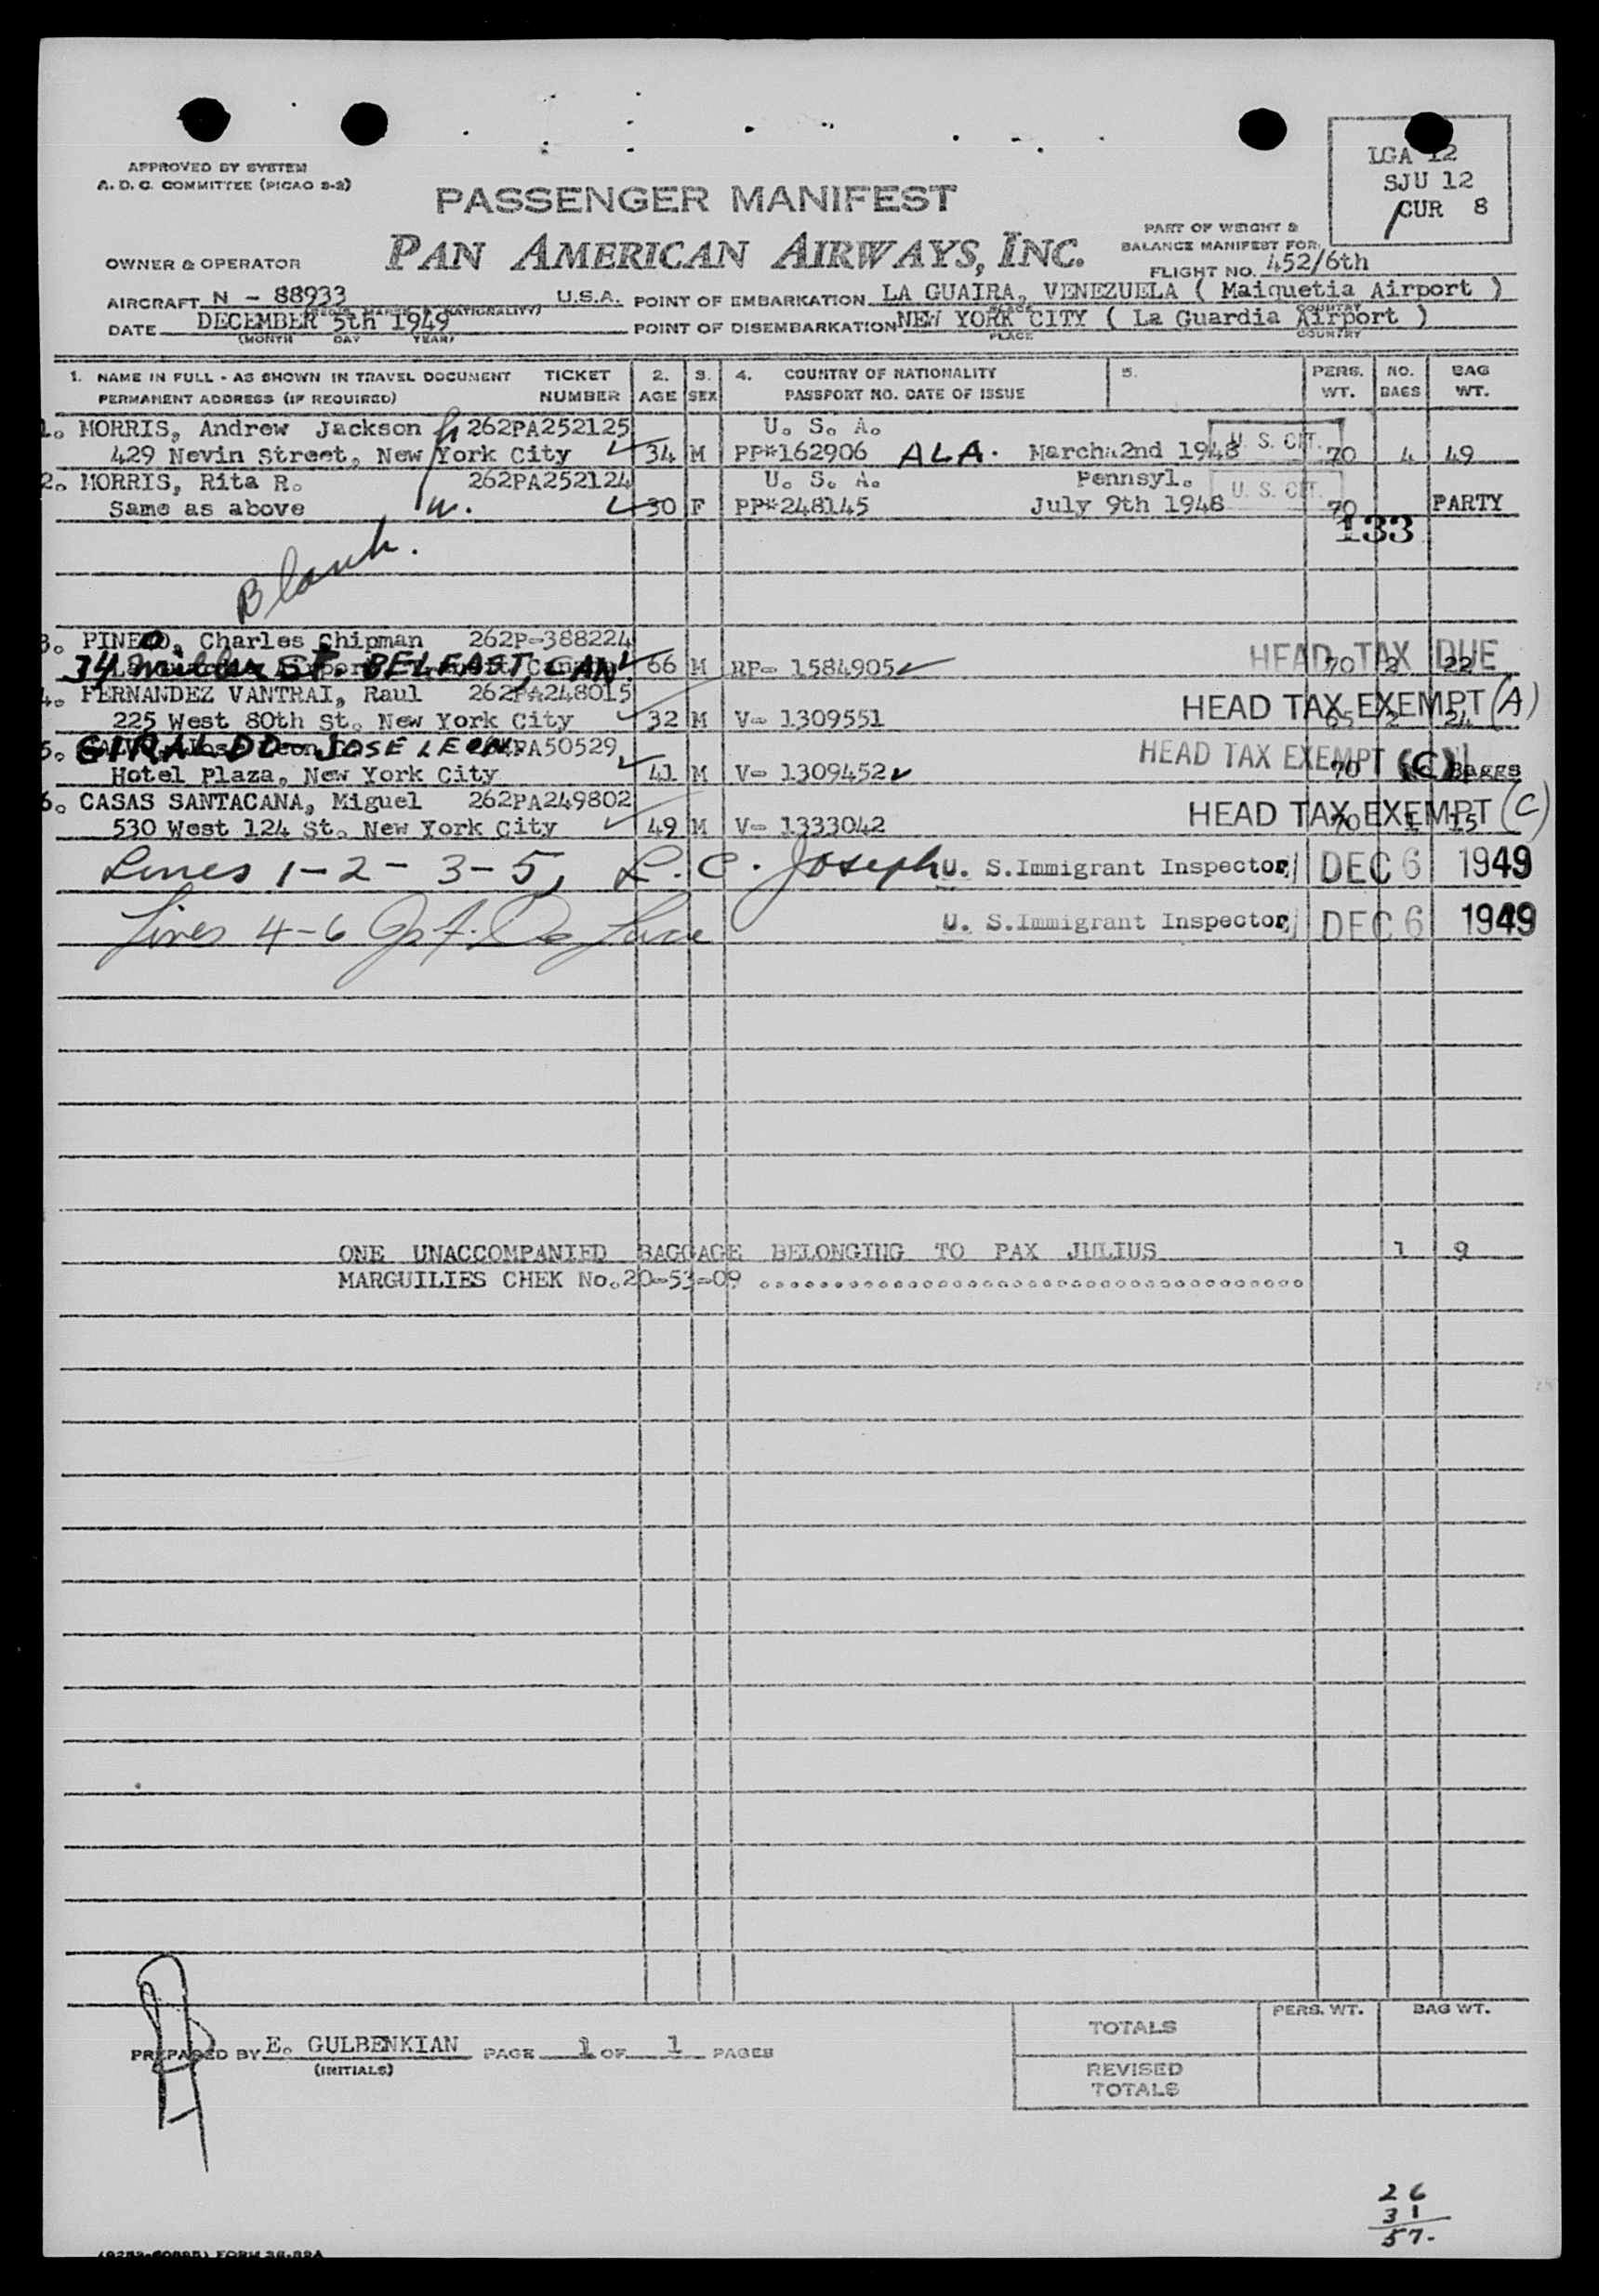 APPROVED BY SYSTEM
A. D. C. COMMITTEE (PICAO 2-2)
LGA 12
SJU 12
CUR 8
PASSENGER MANIFEST
PAN AMERICAN AIRWAYS, INC.
PART OF WEIGHT &
BALANCE MANIFEST FOR,
FLIGHT NO. 452/6th
OWNER & OPERATOR
AIRCRAFT N - 88933 U.S.A. POINT OF EMBARKATION LA GUAIRA, VENEZUELA ( Maiquetia Airport )
DATE DECEMBER 5th 1949 POINT OF DISEMBARKATION NEW YORK CITY ( La Guardia Airport )
(MONTH DAY YEAR) PLACE COUNTRY
1. NAME IN FULL - AS SHOWN IN TRAVEL DOCUMENT TICKET 2. 3. 4. COUNTRY OF NATIONALITY 5. PERS. NO. BAG
PERMANENT ADDRESS (IF REQUIRED) NUMBER AGE SEX PASSPORT NO. DATE OF ISSUE WT. BAGS WT.
1. MORRIS, Andrew Jackson h 262PA252125 U. S. A. U. S. CIT.
429 Nevin Street, New York City 34 M PP#162906 ALA. March 2nd 1948 70 4 49
2. MORRIS, Rita R. 262PA252124 U. S. A. Pennsyl. U. S. CIT.
Same as above w. 30 F PP#248145 July 9th 1948 70 PARTY
133
Blank.
3. PINEO, Charles Chipman 262P-388224 HEAD TAX DUE
34 Miller St. BELFAST, CAN. 66 M RP- 1584905 70 2 22
4. FERNANDEZ VANTRAI, Raul 262PA248015 HEAD TAX EXEMPT (A)
225 West 80th St. New York City 32 M V- 1309551 65 2 24
5. GIRALDO JOSE LEON PA50529 HEAD TAX EXEMPT (C)
Hotel Plaza, New York City 41 M V- 1309452 70 Baggs
6. CASAS SANTACANA, Miguel 262PA249802 HEAD TAX EXEMPT (C)
530 West 124 St. New York City 49 M V- 1333042 70 1 15
Lines 1-2-3-5, L. C. Joseph U. S. Immigrant Inspector DEC 6 1949
Lines 4-6 U. S. Immigrant Inspector DEC 6 1949
ONE UNACCOMPANIED BAGGAGE BELONGING TO PAX JULIUS 1 9
MARGUILIES CHEK No.20-53-09 ....................................
PREPARED BY E. GULBENKIAN PAGE 1 OF 1 PAGES
(INITIALS)
PERS. WT. BAG WT.
TOTALS
REVISED
TOTALS
26
31
57.